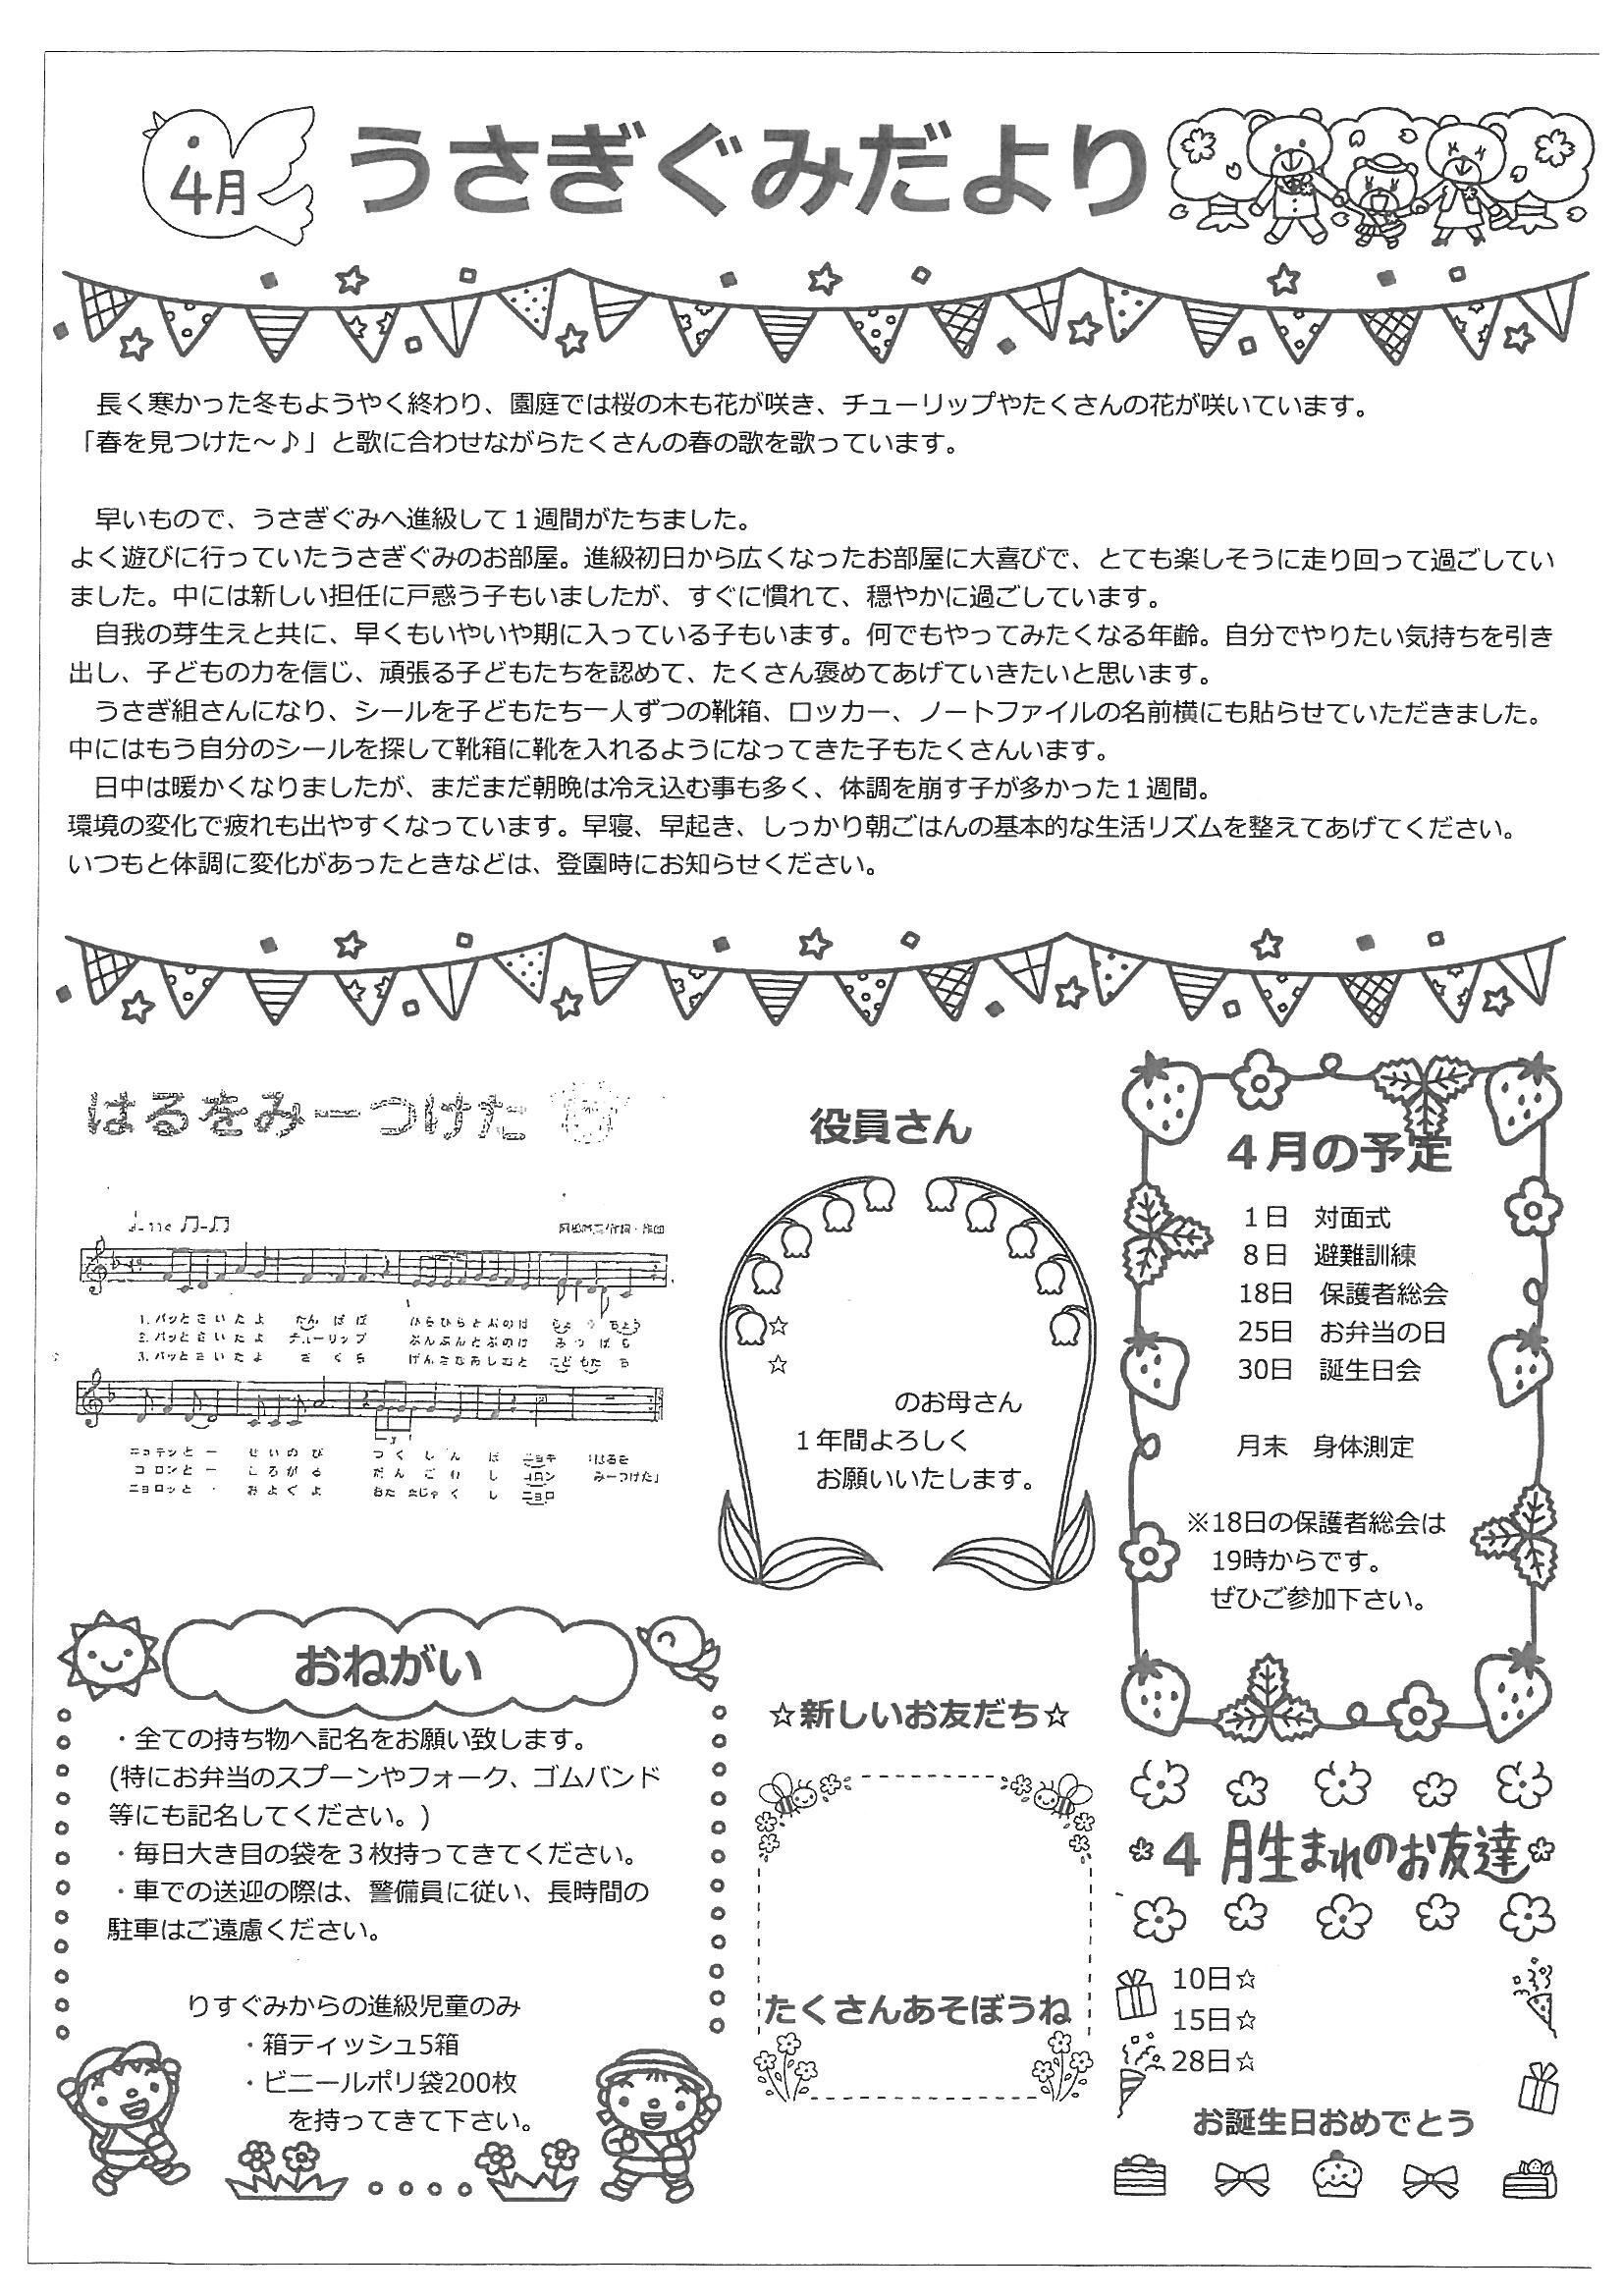 4月
うさぎぐみだより
長く寒かった冬もようやく終わり、園庭では桜の木も花が咲き、チューリップやたくさんの花が咲いています。
「春を見つけた～♪」と歌に合わせながらたくさんの春の歌を歌っています。
早いもので、うさぎぐみへ進級して１週間がたちました。
よく遊びに行っていたうさぎぐみのお部屋。進級初日から広くなったお部屋に大喜びで、とても楽しそうに走り回って過ごしてい
ました。中には新しい担任に戸惑う子もいましたが、すぐに慣れて、穏やかに過ごしています。
自我の芽生えと共に、早くもいやいや期に入っている子もいます。何でもやってみたくなる年齢。自分でやりたい気持ちを引き
出し、子どもの力を信じ、頑張る子どもたちを認めて、たくさん褒めてあげていきたいと思います。
うさぎ組さんになり、シールを子どもたち一人ずつの靴箱、ロッカー、ノートファイルの名前横にも貼らせていただきました。
中にはもう自分のシールを探して靴箱に靴を入れるようになってきた子もたくさんいます。
日中は暖かくなりましたが、まだまだ朝晩は冷え込む事も多く、体調を崩す子が多かった１週間。
環境の変化で疲れも出やすくなっています。早寝、早起き、しっかり朝ごはんの基本的な生活リズムを整えてあげてください。
いつもと体調に変化があったときなどは、登園時にお知らせください。
はるをみーつけた
1. パッとさいたよ たんぽぽ ひらひらとぶのは ちょうちょう
2. パッとさいたよ チューリップ ぶんぶんとぶのは みつばち
3. パッとさいたよ さくら げんきなあしおと こどもたち
ニョキッとー せいのび つくしんぼ ニョキ 「はるを
コロンとー ころがる だんごむし コロン みーつけた」
ニョロッと およぐよ おたまじゃくし ニョロ
役員さん
☆
☆
のお母さん
１年間よろしく
お願いいたします。
４月の予定
１日　対面式
８日　避難訓練
18日　保護者総会
25日　お弁当の日
30日　誕生日会
月末　身体測定
※18日の保護者総会は
19時からです。
ぜひご参加下さい。
おねがい
・全ての持ち物へ記名をお願い致します。
(特にお弁当のスプーンやフォーク、ゴムバンド
等にも記名してください。)
・毎日大き目の袋を３枚持ってきてください。
・車での送迎の際は、警備員に従い、長時間の
駐車はご遠慮ください。
りすぐみからの進級児童のみ
・箱ティッシュ5箱
・ビニールポリ袋200枚
を持ってきて下さい。
☆新しいお友だち☆
たくさんあそぼうね
４月生まれのお友達
10日☆
15日☆
28日☆
お誕生日おめでとう